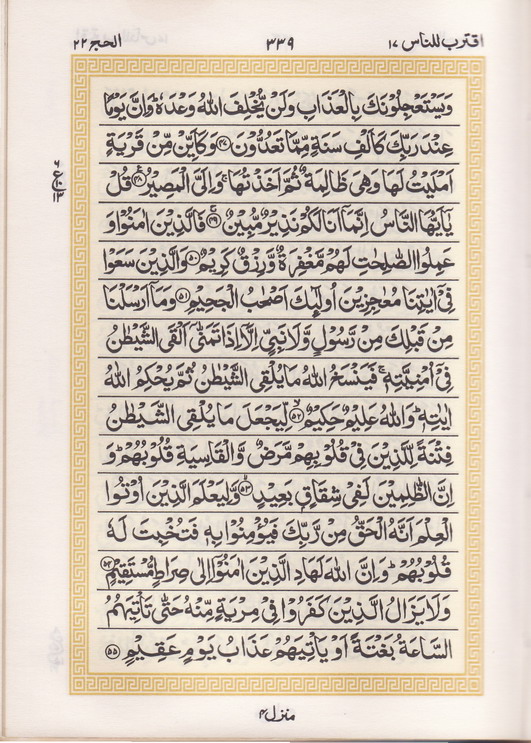 اقترب للناس ۱۷ ۳۳۹ الحج ۲۲
وَيَسْتَعْجِلُوْنَكَ بِالْعَذَابِ وَلَنْ يُّخْلِفَ اللّٰهُ وَعْدَهٗ ؕ وَاِنَّ يَوْمًا
عِنْدَ رَبِّكَ كَاَلْفِ سَنَةٍ مِّمَّا تَعُدُّوْنَ ﴿۴۷﴾ وَكَاَيِّنْ مِّنْ قَرْيَةٍ
اَمْلَيْتُ لَهَا وَهِيَ ظَالِمَةٌ ثُمَّ اَخَذْتُهَا ۚ وَاِلَيَّ الْمَصِيْرُ ﴿۴۸﴾ قُلْ
يٰۤاَيُّهَا النَّاسُ اِنَّمَاۤ اَنَا لَكُمْ نَذِيْرٌ مُّبِيْنٌ ﴿۴۹﴾ فَالَّذِيْنَ اٰمَنُوْا وَ
عَمِلُوا الصّٰلِحٰتِ لَهُمْ مَّغْفِرَةٌ وَّرِزْقٌ كَرِيْمٌ ﴿۵۰﴾ وَالَّذِيْنَ سَعَوْا
فِيْۤ اٰيٰتِنَا مُعٰجِزِيْنَ اُولٰٓئِكَ اَصْحٰبُ الْجَحِيْمِ ﴿۵۱﴾ وَمَاۤ اَرْسَلْنَا
مِنْ قَبْلِكَ مِنْ رَّسُوْلٍ وَّلَا نَبِيٍّ اِلَّاۤ اِذَا تَمَنّٰۤى اَلْقَى الشَّيْطٰنُ
فِيْۤ اُمْنِيَّتِهٖ ۚ فَيَنْسَخُ اللّٰهُ مَا يُلْقِى الشَّيْطٰنُ ثُمَّ يُحْكِمُ اللّٰهُ
اٰيٰتِهٖ ؕ وَاللّٰهُ عَلِيْمٌ حَكِيْمٌ ﴿۵۲﴾ لِّيَجْعَلَ مَا يُلْقِى الشَّيْطٰنُ
فِتْنَةً لِّلَّذِيْنَ فِيْ قُلُوْبِهِمْ مَّرَضٌ وَّالْقَاسِيَةِ قُلُوْبُهُمْ ؕ وَ
اِنَّ الظّٰلِمِيْنَ لَفِيْ شِقَاقٍۭ بَعِيْدٍ ﴿۵۳﴾ وَّلِيَعْلَمَ الَّذِيْنَ اُوْتُوا
الْعِلْمَ اَنَّهُ الْحَقُّ مِنْ رَّبِّكَ فَيُؤْمِنُوْا بِهٖ فَتُخْبِتَ لَهٗ
قُلُوْبُهُمْ ؕ وَاِنَّ اللّٰهَ لَهَادِ الَّذِيْنَ اٰمَنُوْۤا اِلٰى صِرَاطٍ مُّسْتَقِيْمٍ ﴿۵۴﴾
وَلَا يَزَالُ الَّذِيْنَ كَفَرُوْا فِيْ مِرْيَةٍ مِّنْهُ حَتّٰى تَاْتِيَهُمُ
السَّاعَةُ بَغْتَةً اَوْ يَاْتِيَهُمْ عَذَابُ يَوْمٍ عَقِيْمٍ ﴿۵۵﴾
منزل ۴